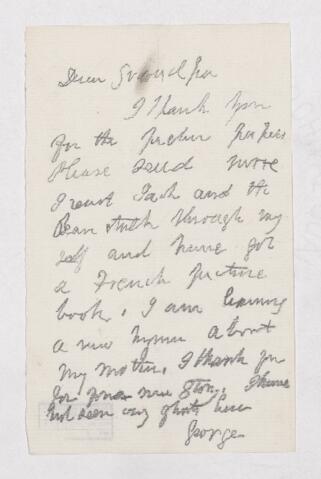 Dear Grandpa
I thank you
for the picture papers
Please send more
I read Jack and the
Bean stalk through my
self and have got
a French picture
book. I am learning
a new hymn about
my mother, I thank you
for your new story. I have
not seen any ghosts here
George